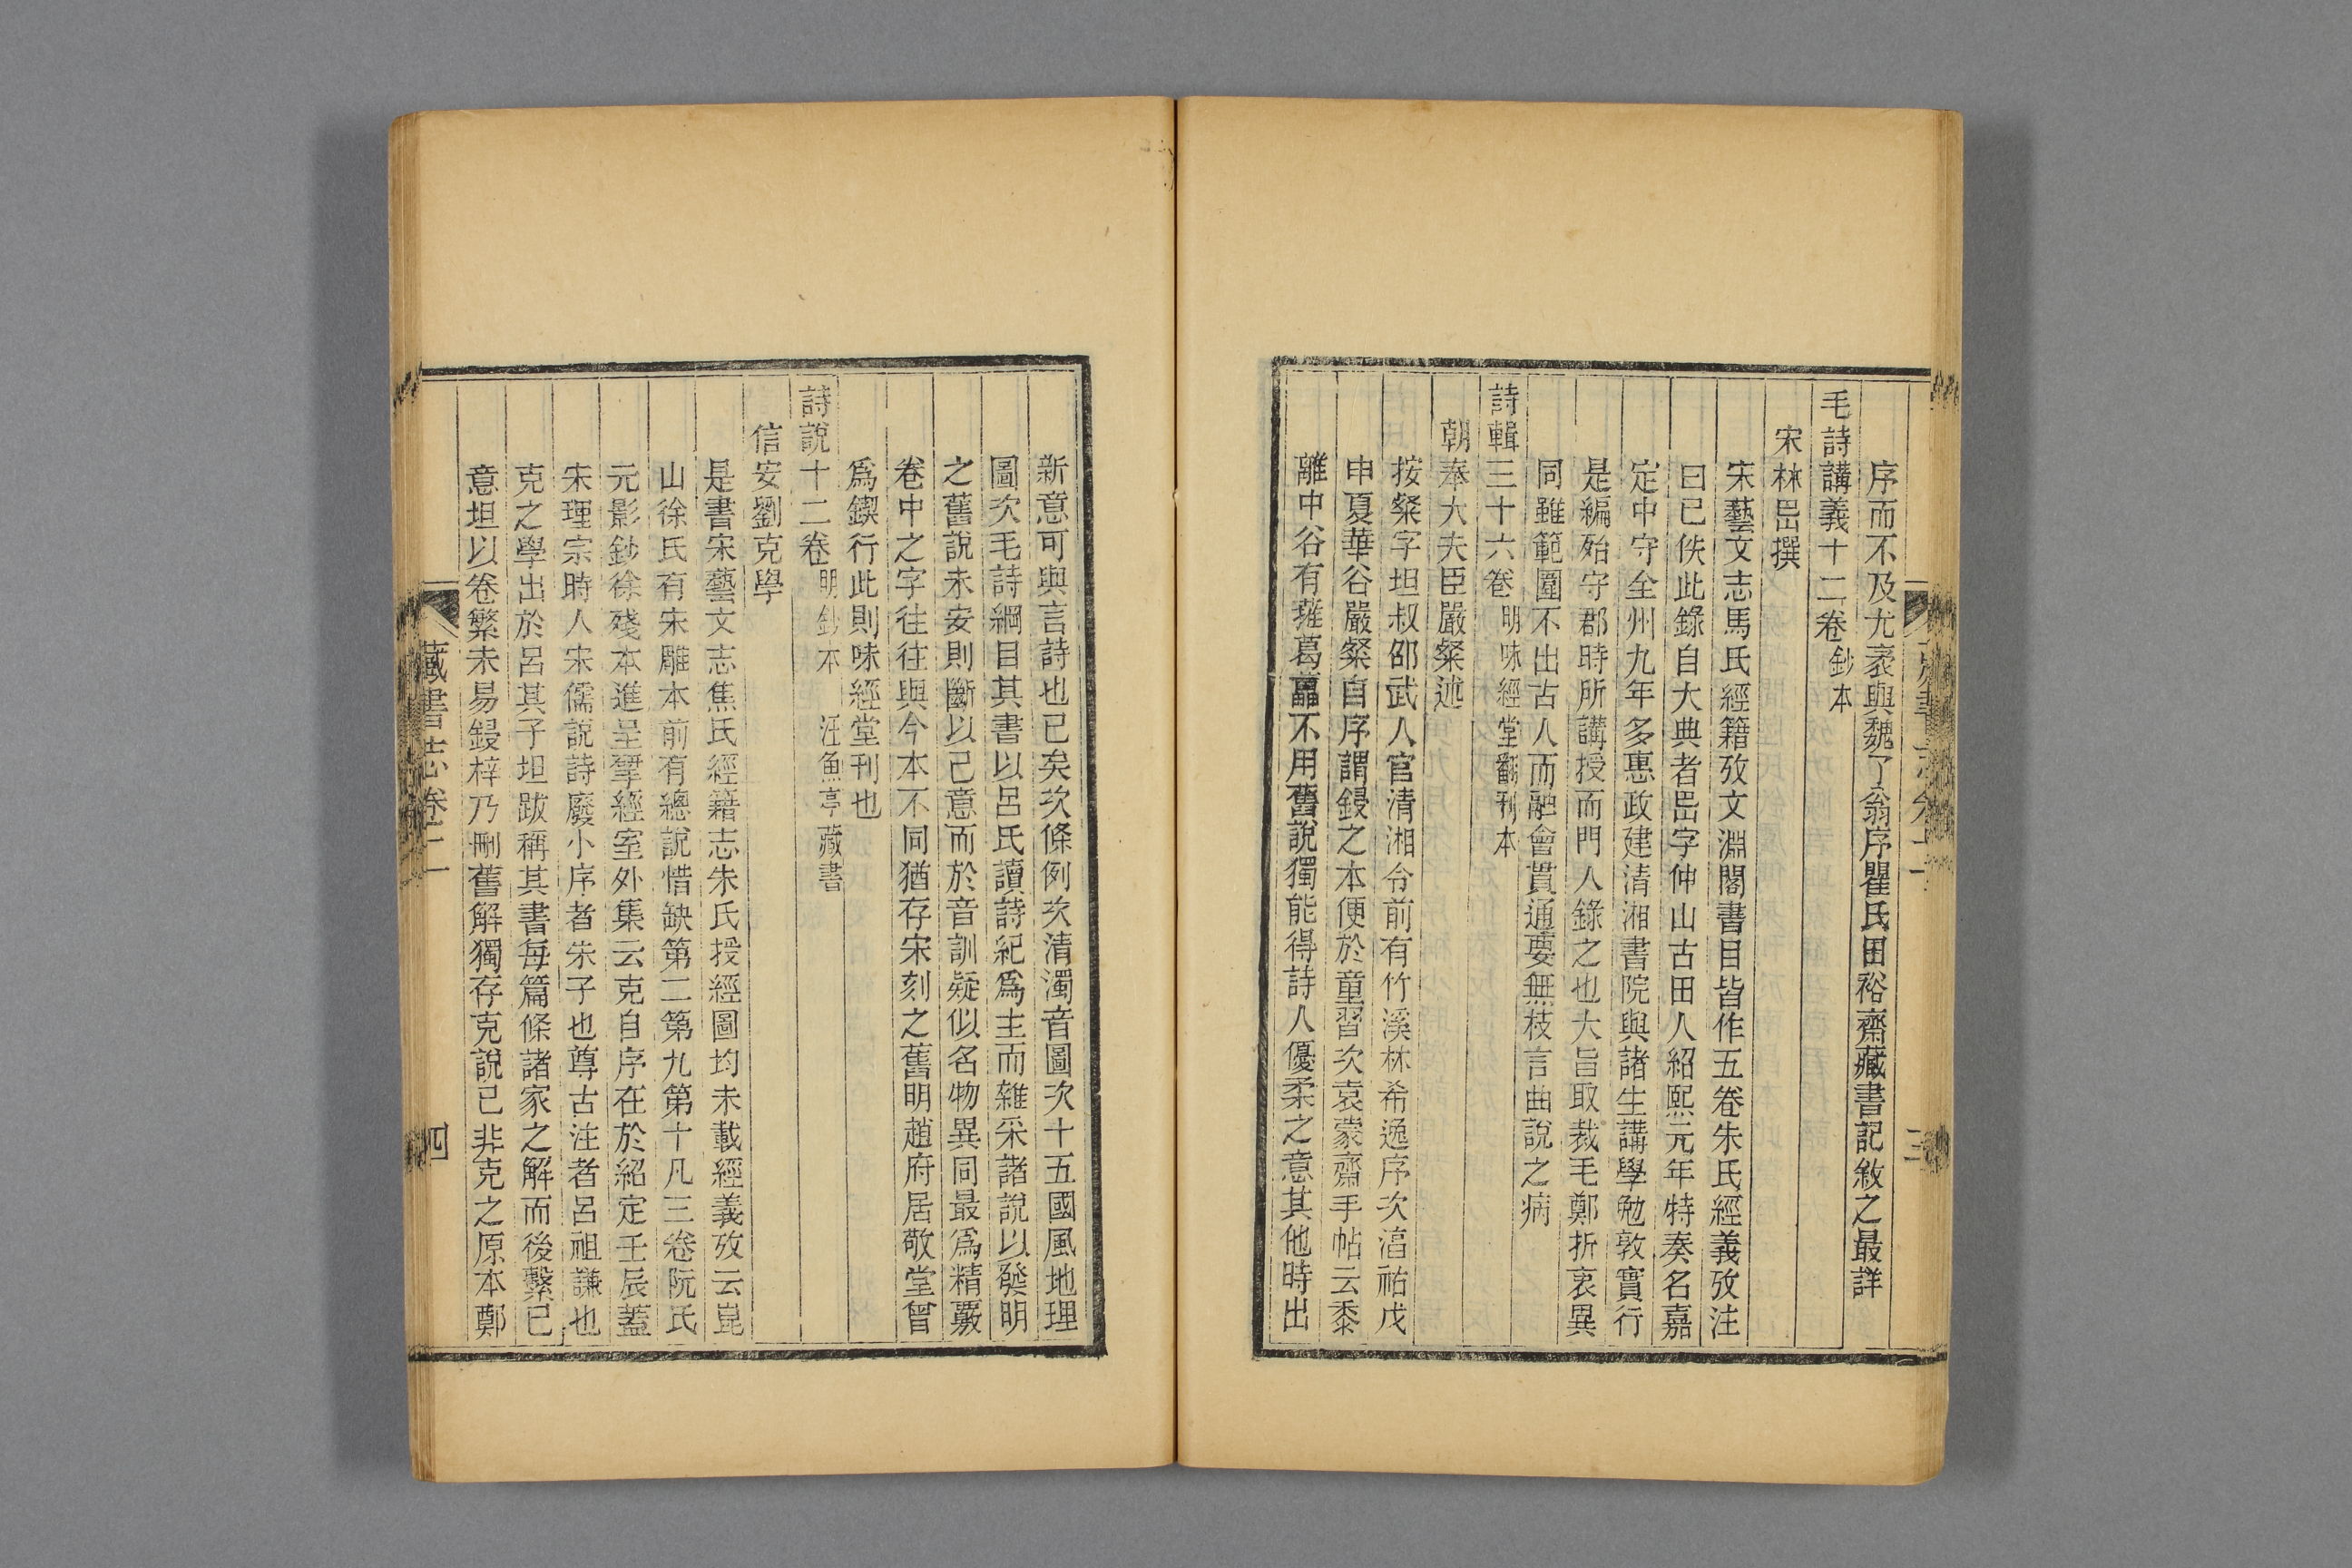 序而不及尤袤與魏了翁序瞿氏田裕齋藏書記敘之最詳
毛詩講義十二卷鈔本
宋林岊撰
宋藝文志馬氏經籍攷文淵閣書目皆作五卷朱氏經義攷注
曰已佚此錄自大典者岊字仲山古田人紹熙元年特奏名嘉
定中守全州九年多惠政建清湘書院與諸生講學勉敦實行
是編殆守郡時所講授而門人錄之也大旨取裁毛鄭折衷異
同雖範圍不出古人而融會貫通要無枝言曲說之病
詩輯三十六卷明味經堂翻刊本
朝奉大夫臣嚴粲述
按粲字坦叔邵武人官清湘令前有竹溪林希逸序次湻祐戊
申夏華谷嚴粲自序謂鋟之本便於童習次袁蒙齋手帖云黍
離中谷有蓷葛藟不用舊說獨能得詩人優柔之意其他時出
新意可與言詩也已矣次條例次清濁音圖次十五國風地理
圖次毛詩綱目其書以呂氏讀詩紀爲主而雜采諸說以發明
之舊說未安則斷以己意而於音訓疑似名物異同最爲精覈
卷中之字往往與今本不同猶存宋刻之舊明趙府居敬堂曾
爲鍥行此則味經堂刊也
詩說十二卷明鈔本 汪魚亭藏書
信安劉克學
是書宋藝文志焦氏經籍志朱氏授經圖均未載經義攷云崑
山徐氏有宋雕本前有總說惜缺第二第九第十凡三卷阮氏
元影鈔徐殘本進呈揅經室外集云克自序在於紹定壬辰蓋
宋理宗時人宋儒說詩廢小序者朱子也尊古注者呂祖謙也
克之學出於呂其子坦跋稱其書每篇條諸家之解而後繫己
意坦以卷繁未易鋟梓乃刪舊解獨存克說已非克之原本鄭
藏書志卷二
四